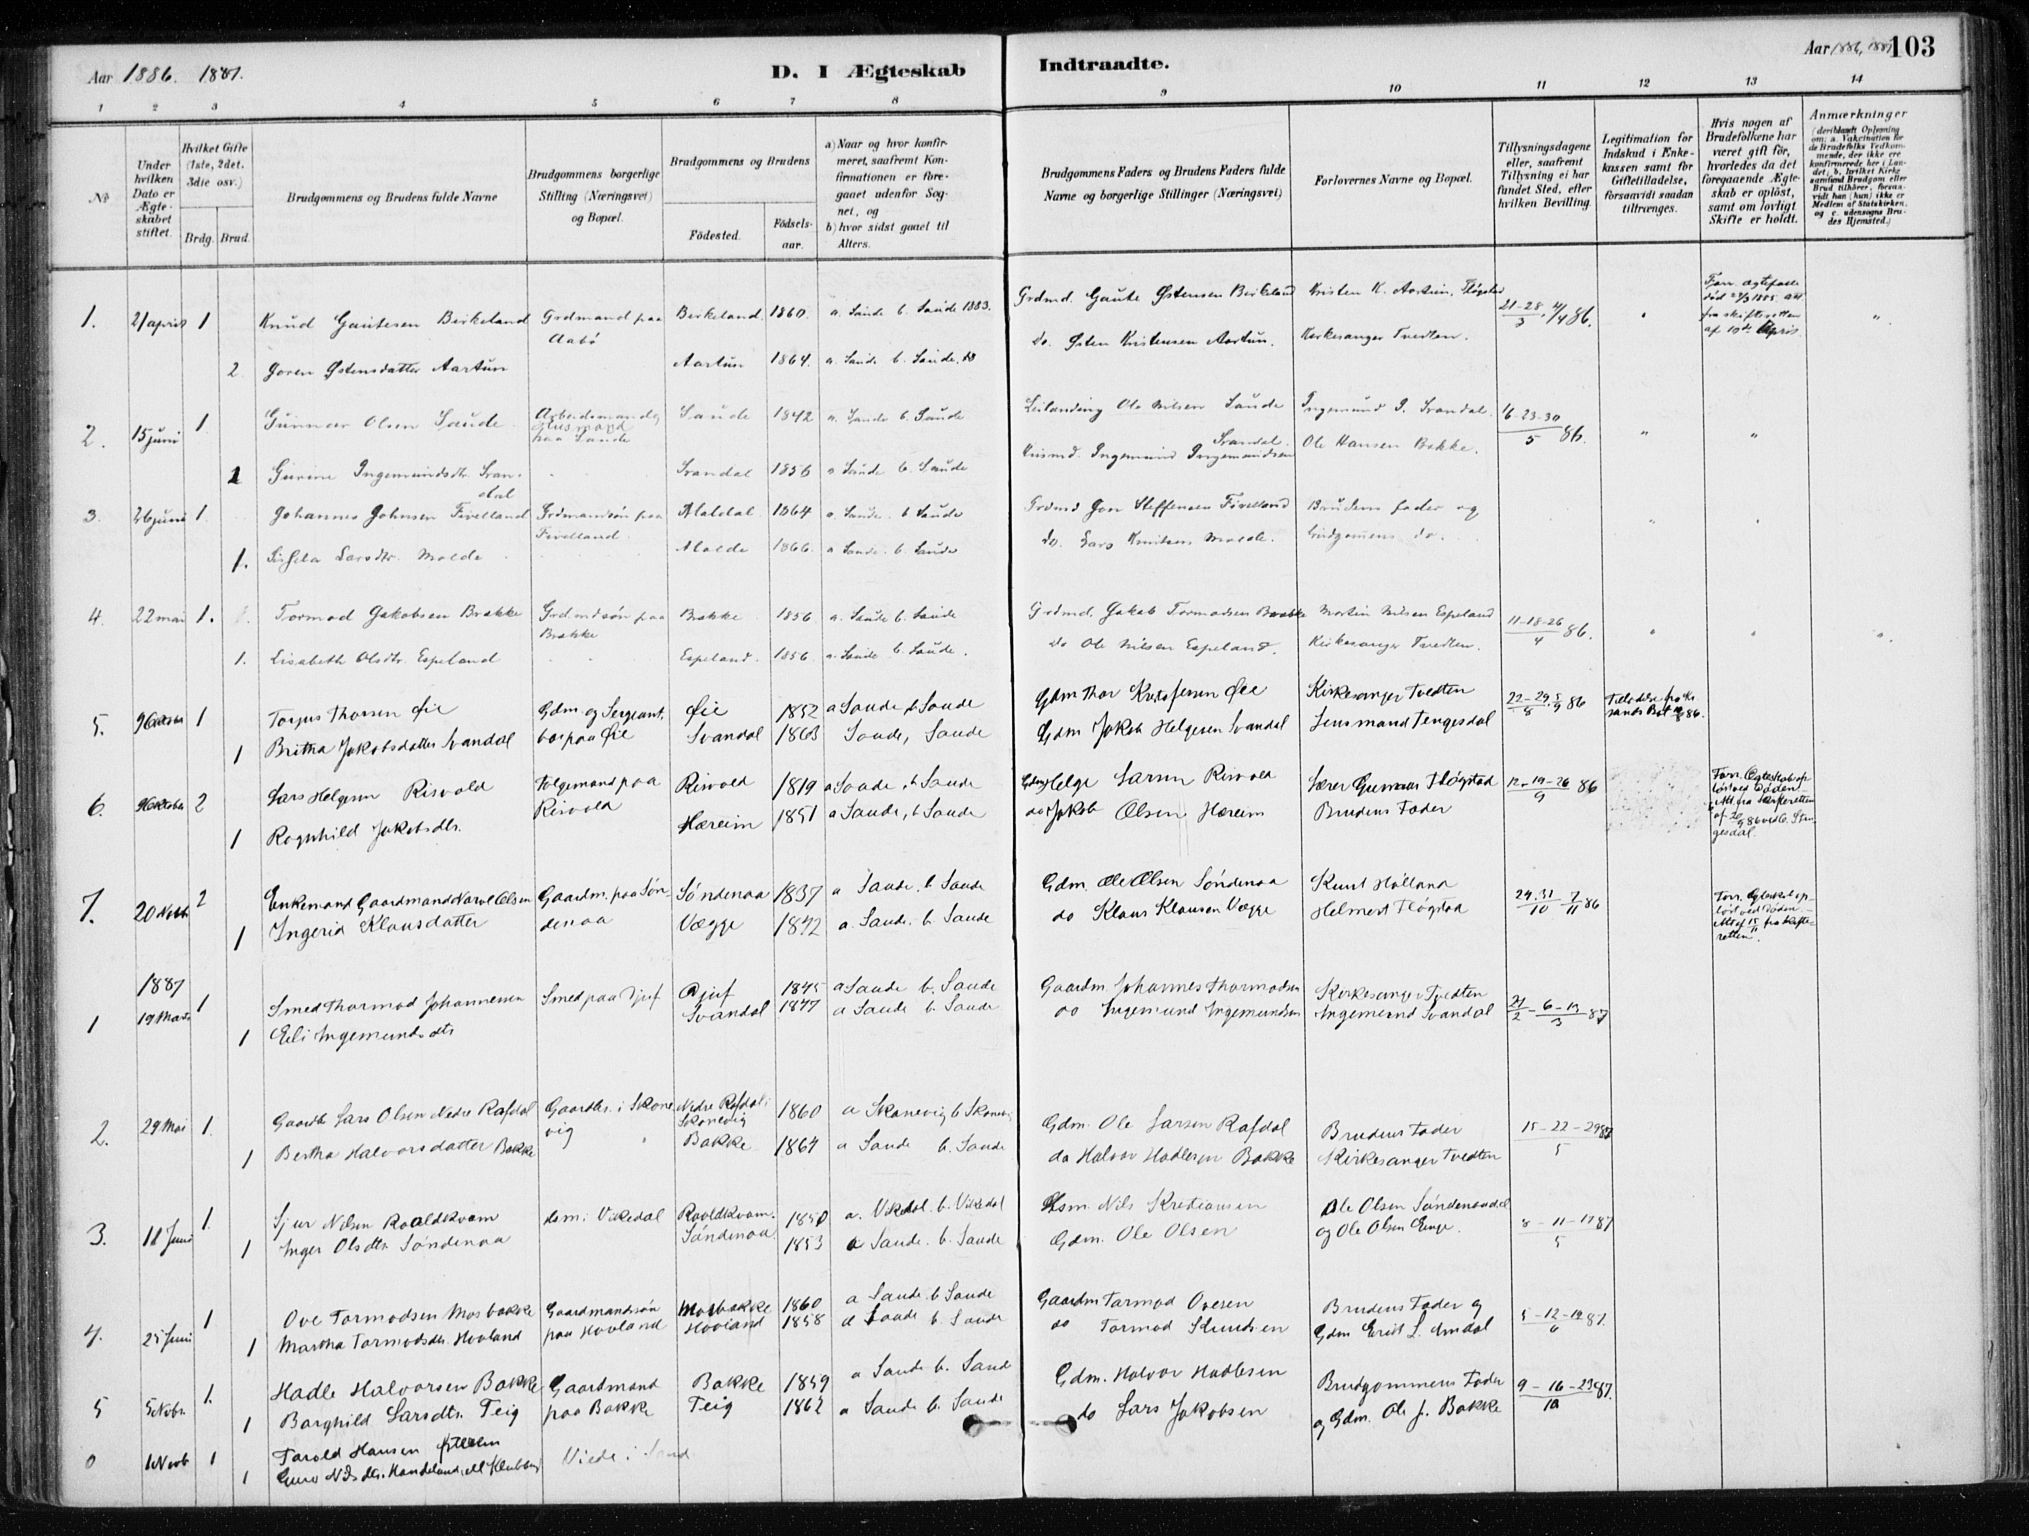 Aar 1886. 1887.
D. I Ægteskab
Indtraadte.
Aar 1886, 1887
103
1 2 3 4 5 6 7 8 9 10 11 12 13 14
№
Under hvilken Dato er Ægteskabet stiftet.
Hvilket Gifte (1ste, 2det, 3die osv.)
Brdg. Brud.
Brudgommens og Brudens fulde Navne
Brudgommens borgerlige Stilling (Næringsvei) og Bopæl.
Brudgommens og Brudens
Fødested.
Fødselsaar.
a) Naar og hvor konfirmeret, saafremt Konfirmationen er foregaaet udenfor Sognet, og
b) hvor sidst gaaet til Alters.
Brudgommens Faders og Brudens Faders fulde Navne og borgerlige Stillinger (Næringsvei)
Forlovernes Navne og Bopæl.
Tillysningsdagene eller, saafremt Tillysning ei har fundet Sted, efter hvilken Bevilling.
Legitimation for Indskud i Enkekassen samt for Giftetilladelse, forsaavidt saadan tiltrænges.
Hvis nogen af Brudefolkene har været gift før, hvorledes da det foregaaende Ægteskab er opløst, samt om lovligt Skifte er holdt.
Anmærkninger
(deriblandt Oplysning om: a. Vakcination for de Brudefolks Vedkommende, der ikke ere konfirmerede her i Landet; b. hvilket Kirkesamfund Brudgom eller Brud tilhører, forsaavidt han (hun) ikke er Medlem af Statskirken, og c. udensogns Brudes Hjemsted.)
1. 21 april 1 Knud Gautesen Birkeland Grdmand paa Aabø Birkeland. 1860. a. Saude b. Saude 1883. Grdmd. Gaute Østensen Birkeland Kristen K. Aartun, Fløgstad 21-28/3 4/4 86.
Forr. ægtefælle død 1885. Att fra skifteretten af 19de April
2. Goren Østensdatter Aartun Aartun 1864. a. Saude b. Saude. do. Østen Kristensen Aartun. Kirkesanger Tvedten.
2. 15 juni 1 Gunnar Olsen Saude. Arbeidsmand og Husmand paa Saude Saude 1842 a. Saude b. Saude Leilending Ole Nilsen Saude Ingemund I. Svandal. 16-23-30/5 86.
1 Gurine Ingemundsdtr. Svandal Svandal 1856 a Saude b. Saude Husmd. Ingemund Ingemundsen Svandal. Ole Hansen Bakke.
3. 26 juni 1. Johannes Johnsen Fivelland Grdmandsøn paa Fivelland. Maldal 1864 a. Saude b Saude Grdmd Jon Steffensen Fivelland Brudens fader og
1. Larsdtr. Molde Molde 1866. a Saude. b. Saude do. Lars Knutsen Molde. brudgomens do.
4. 22 mai 1. Tormod Jakobsen Brakke Grdmdsøn paa Brakke Brakke 1856 a. Saude b. Saude Grdmd. Jakob Tormodsen Brakke Morten Nilsen Espeland 11-18-26/4 86.
1. Lisabeth Olsdtr. Espeland Espeland. 1856. a. Saude b. Saude. do Ole Nilsen Espeland. Kirkesanger Tvedten.
5. 9 Oktober 1 Torjus Thorsen Øie Gdm og Sergeant, bor paa Øie Øie 1852 a Saude, b Saude Gdm Thor Øie Kirkesanger Tvedten 22-29/8 5/9 86
1 Britha Jakobsdatter Svandal Svandal 1863 Saude, Saude Gdm Jakob Helgesen Svandal Lensmand Tengesdal
6. Oktober 2 Lars Helgesen Risvold Følgemand paa Risvold Risvold 1819 a Saude, b Saude Gdm Helge Larsen Risvold Lærer Gunnar Fløgstad 12-19-26/9 86
Forr. Ægteskab opløst ved Døden. Att. fra Skifteretten af 20/9 86
1 Ragnhild Jakobsdtr. Hæreim 1851 a Saude, b Saude do Jakob Olsen Hæreim Brudens Fader
7. 20 Novbr. 2 Enkemand Gaardmand Olsen Gaardm. paa Søndenaa Søndenaa 1837 a Saude. b Saude Gdm. Ole Olsen Søndenaa Knut Hølland 24.31/10 7/11 86
Forr. Ægteskab opløst ved Døden Att af 15/11 fra Skifteretten.
1 Ingerid Klausdatter Vægge 1842 a. Saude. b. Saude do Klaus Klausen Vægge Helmert Fløgstad
1887
1 19 Marts 1 Smed Thormod Johannesen Smed paa Djuf Djuf 1845 a Saude b. Saude Gaardm. Johannes Thormodsen Kirkesanger Tvedten 27/2-6-13/3 87
1 Eli Ingemundsdtr Svandal 1847 a Saude b. Saude do Ingemund Ingemundsen Ingemund Svandal
2. 29 Mai 1. Gaardb Lars Olsen Nedre Rafdal Gaardbr. i Skonevig Nedre Rafdal i Skonevig 1860 a Skonevig b Skonevig Gdm. Ole Larsen Rafdal Brudens Fader 15-22-29/5 87
1 Bertha Halvorsdatter Bakke Bakke 1864 a Saude b. Saude do Halvor Hadlesen Bakke Kirkesanger Tvedten
3. 11 Juni 1. Sjur Nilsen Roaldkvam i Vikedal Roaldkvam. 1850 a. Vikedal. b. Vikedal Nils Kristiansen Ole Olsen Søndenaadal 8-11-19/5 87
1 Inger Olsdtr Søndenaa Søndenaa 1853 a Saude. b. Saude Gdm. Ole Olsen og Ole Olsen Enge.
4. 25 Juni 1 Ove Tormodsen Mosbakke Gaardmandsøn paa Hovland Mosbakke 1860 a Saude. b Saude Gaardm Tormod Ovesen Brudens Fader og 5-12-19/6 87.
1 Martha Tormodsdtr. Hovland Hovland 1858 a Saude b. Saude do Tormod Knudsen Gdm Erik L. Amdal
5 5 Nobr. 1. Hadle Halvorsen Bakke Gaardmand paa Bakke Bakke 1859 a Saude b. Saude Gdm. Halvor Hadlesen Brudgommens Fader 9-16-23/10 87.
1 Borghild Larsdtr. Teig Teig 1862 a Saude b. Saude do Lars Jakobsen og Gdm. Ole J. Bakke
0 1 Novb 1 Tarold Hansen Viede i Sand
1 Guro Nilsdtr. Handeland